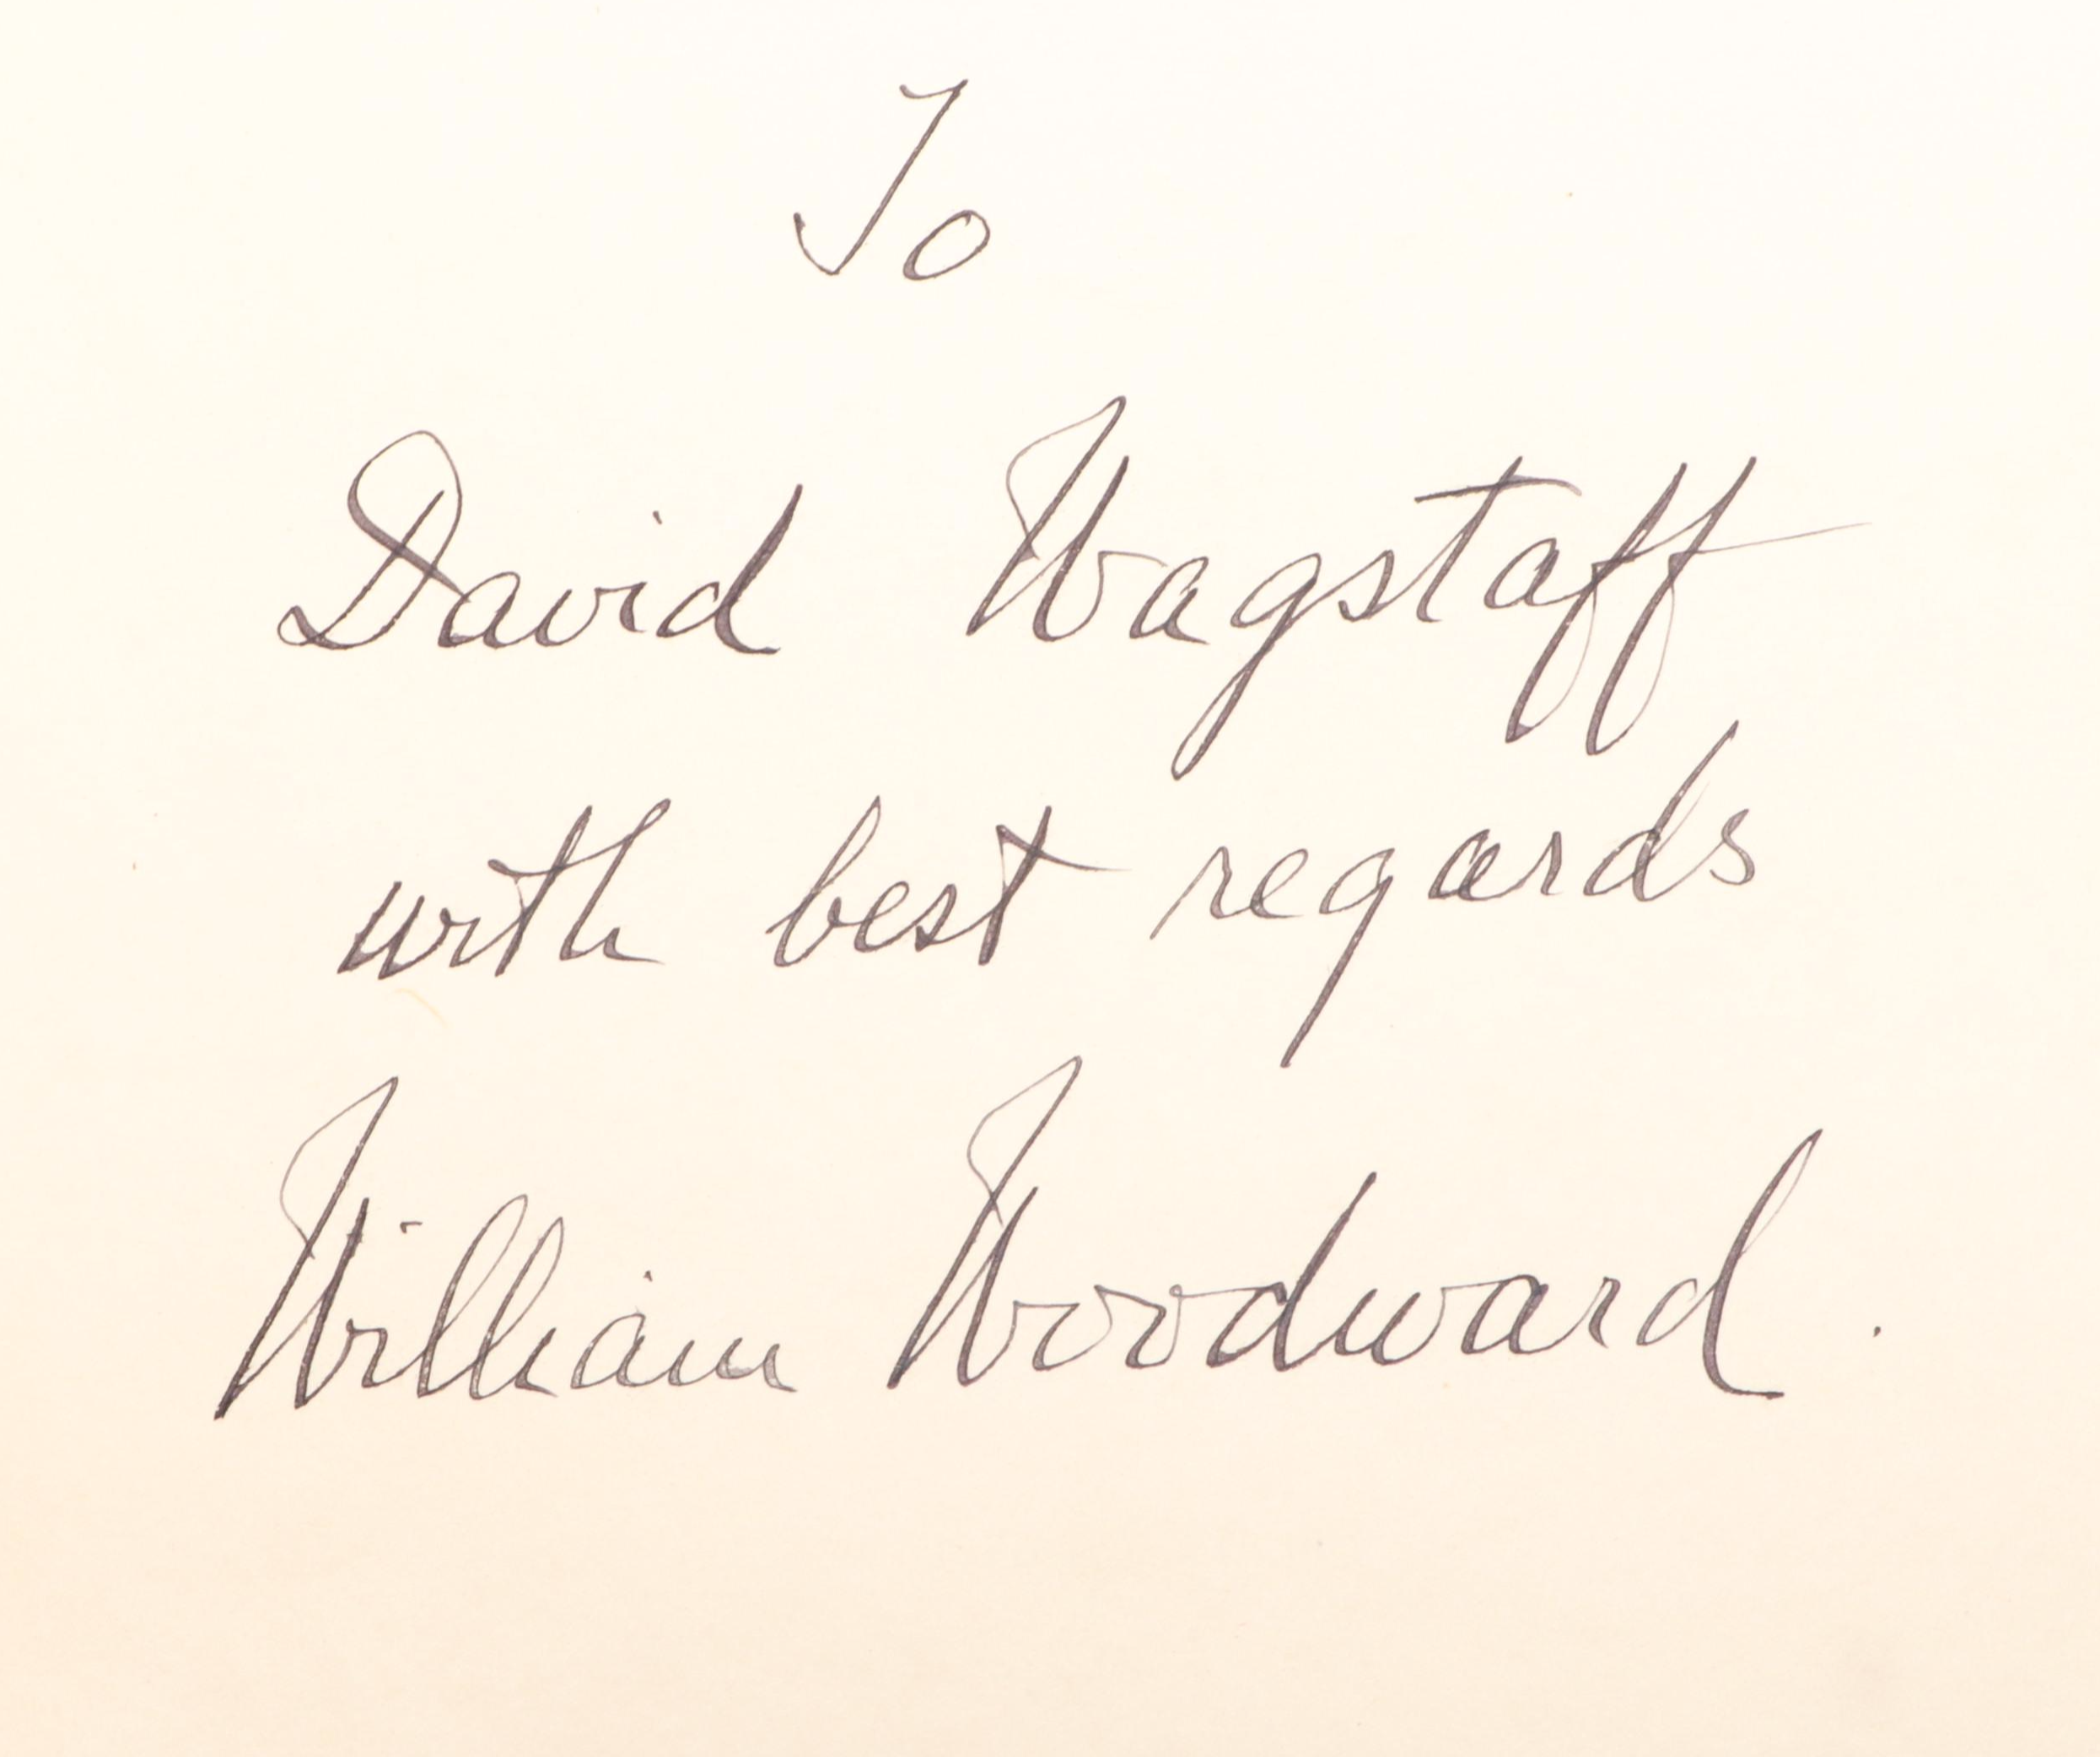 To
David Wagstaff
with best regards
William Woodward.